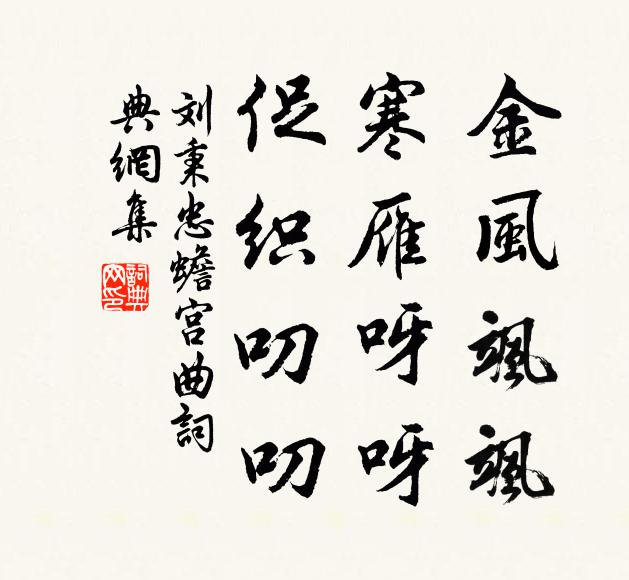 金風颯颯
寒雁呀呀
促织叨叨
刘秉忠蟾宫曲詞
典網集
詞典网印